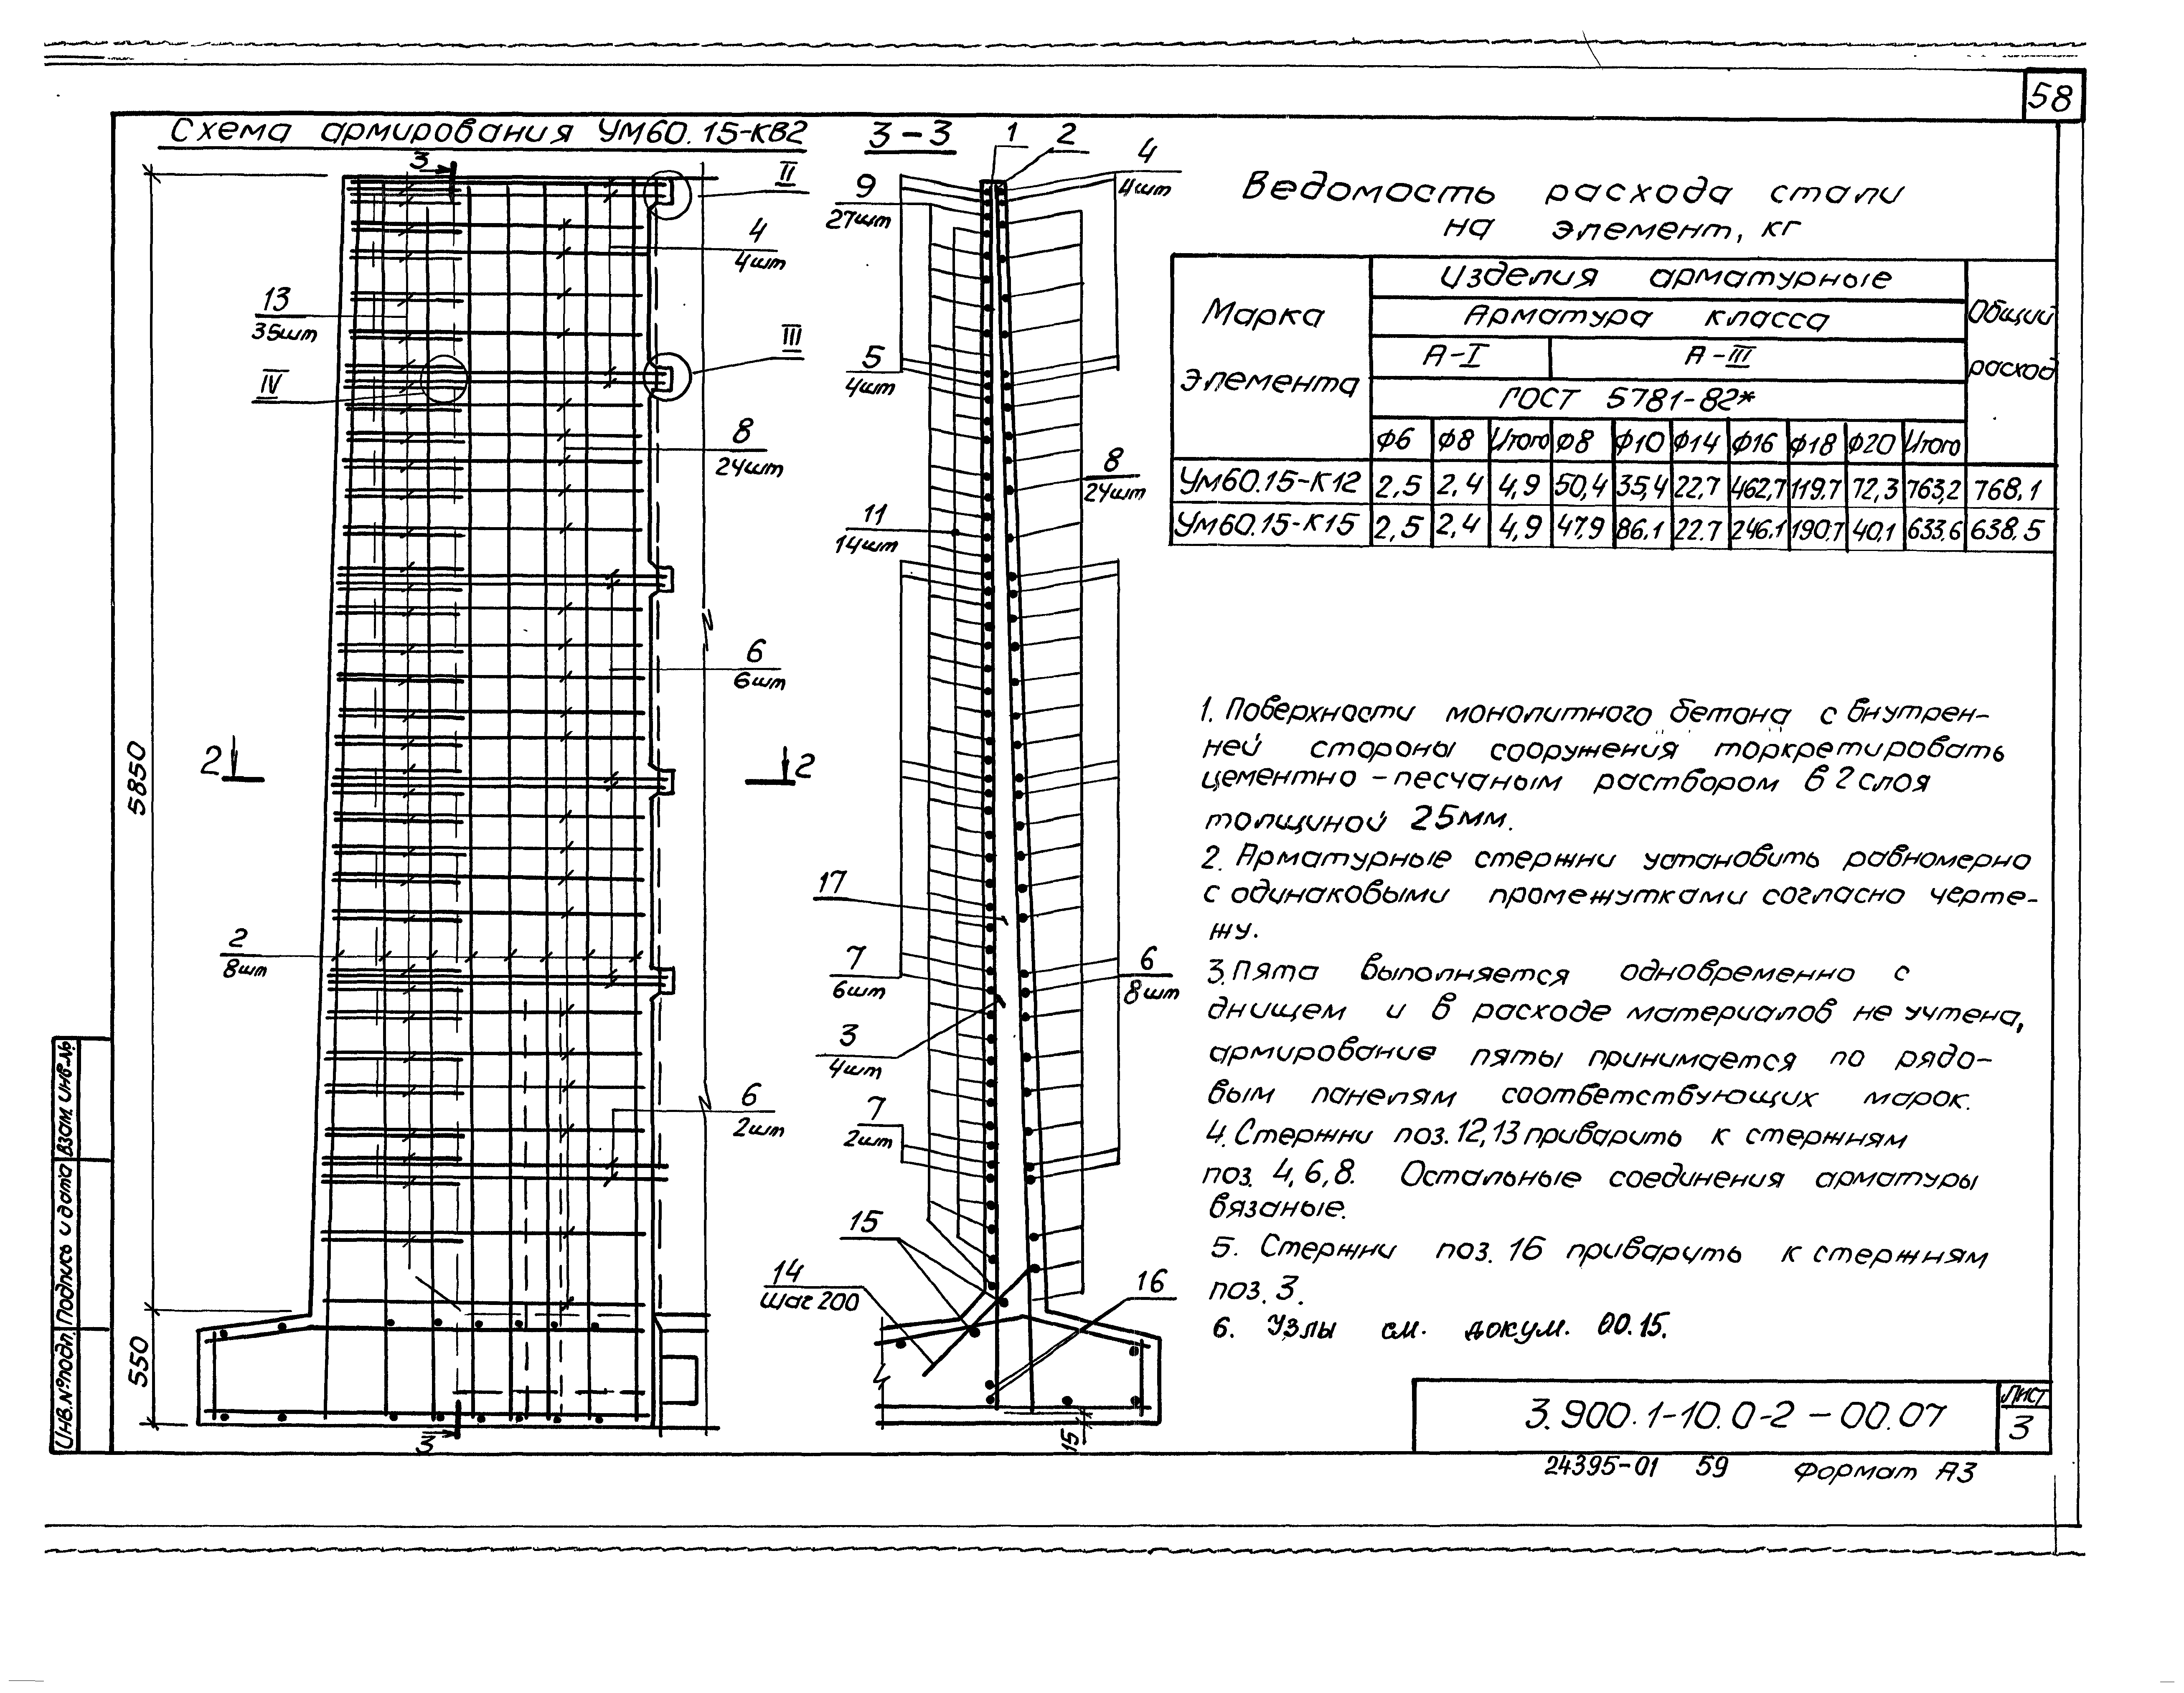 58
Схема армирования Ум60.15-КВ2
3-3
1
2
3
II
4
4шт
9
27шт
4
4шт
13
35шт
III
IV
5
4шт
8
24шт
8
24шт
11
14шт
6
6шт
5850
2
2
17
2
8шт
7
6шт
6
8шт
3
4шт
6
2шт
7
2шт
15
14
шаг 200
16
550
3
15
Ведомость расхода стали
на элемент, кг
Марка элемента
Изделия арматурные
Общий расход
Арматура класса
А-I А-III
ГОСТ 5781-82*
Ф6 Ф8 Итого Ф8 Ф10 Ф14 Ф16 Ф18 Ф20 Итого
Ум60.15-К12 2,5 2,4 4,9 50,4 35,4 22,7 462,7 119,7 72,3 763,2 768,1
Ум60.15-К15 2,5 2,4 4,9 47,9 86,1 22,7 246,1 190,7 40,1 633,6 638,5
1. Поверхности монолитного бетона с внутрен-
ней стороны сооружения торкретировать
цементно-песчаным раствором в 2 слоя
толщиной 25мм.
2. Арматурные стержни установить равномерно
с одинаковыми промежутками согласно черте-
жу.
3. Пята выполняется одновременно с
днищем и в расходе материалов не учтена,
армирование пяты принимается по рядо-
вым панелям соответствующих марок.
4. Стержни поз. 12, 13 приварить к стержням
поз. 4, 6, 8. Остальные соединения арматуры
вязаные.
5. Стержни поз. 16 приварить к стержням
поз. 3.
6. Узлы см. докум. 00.15.
Инв.№подл. Подпись и дата Взам. инв.№
3.900.1-10.0-2-00.07
Лист
3
24395-01 59 Формат А3